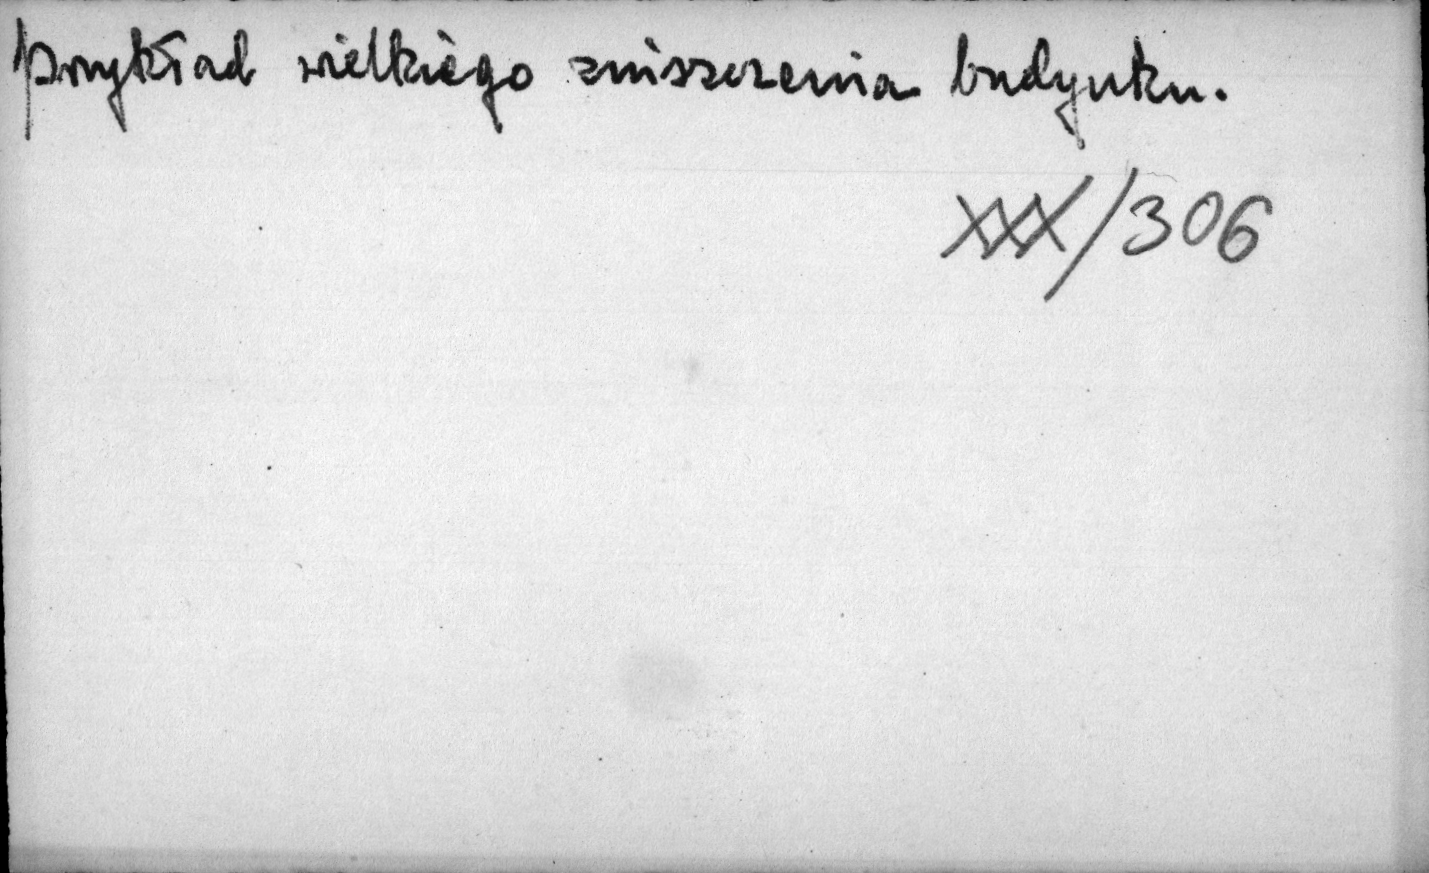 przykład wielkiego zniszczenia budynku.
XXX/306